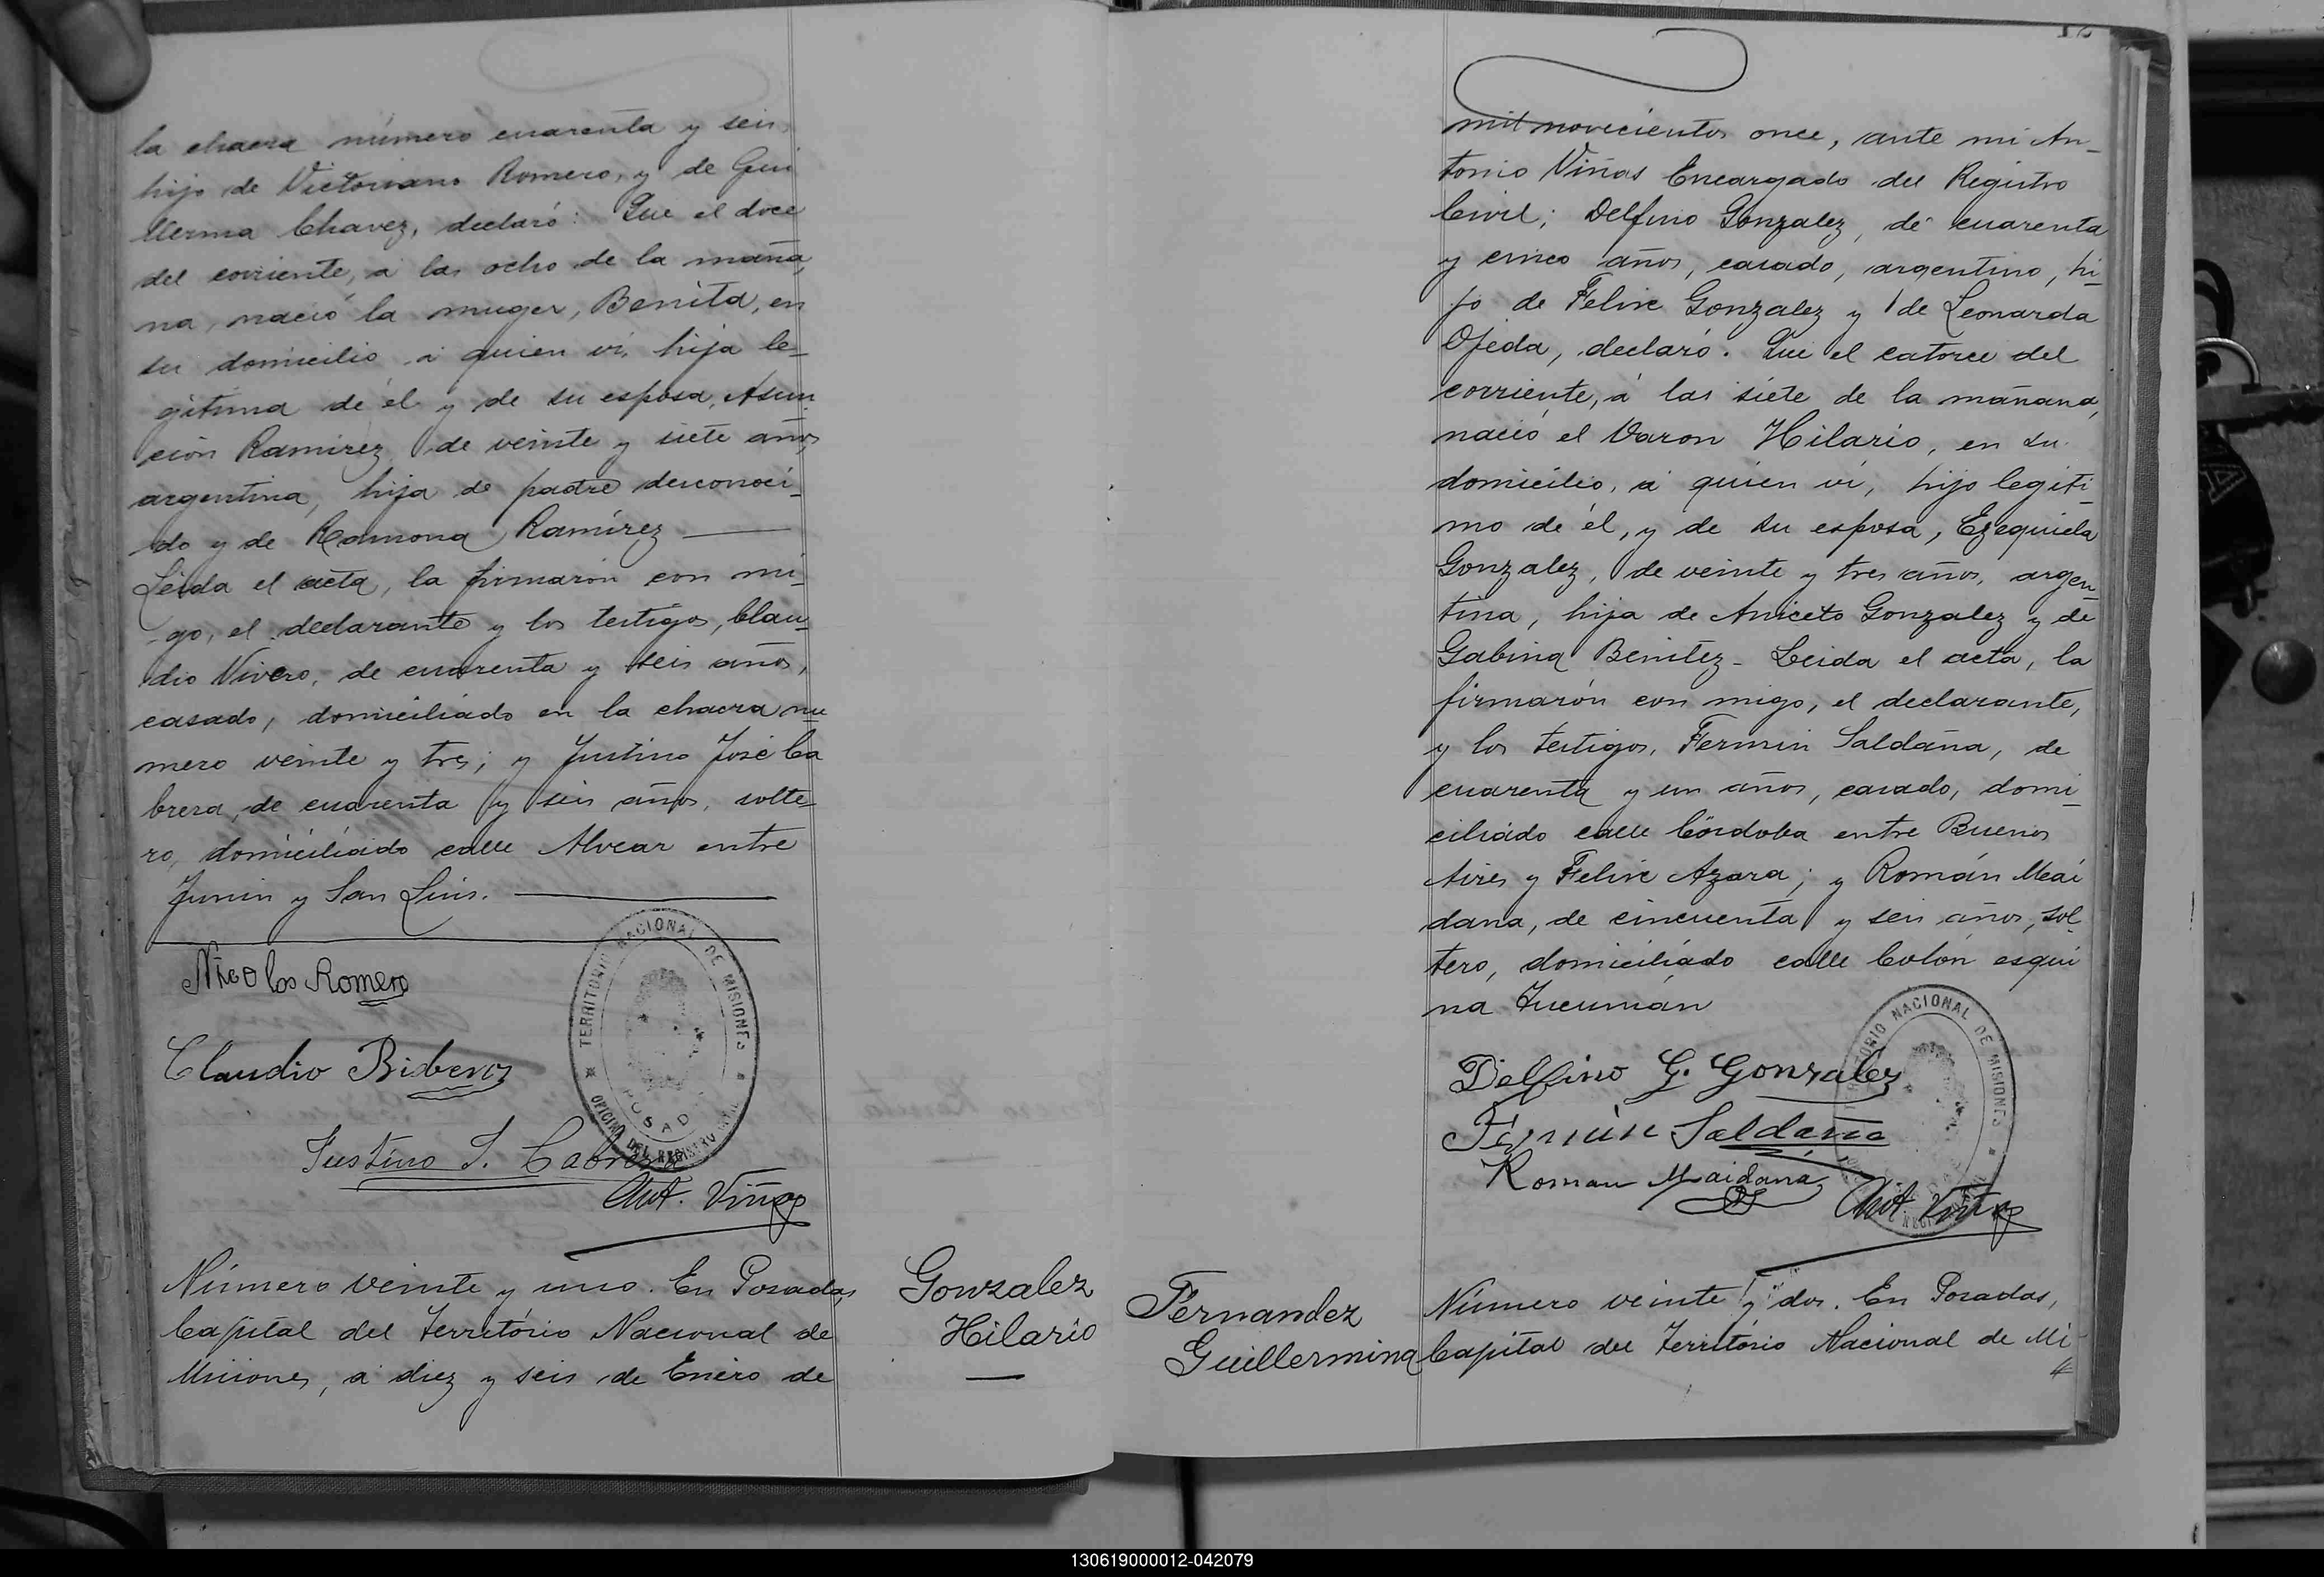 la chacra número cuarenta y seis,
hijo de Victoriano Romero, y de Gui
llerma Chavez, declaró: Que el doce
del corriente, á las ocho de la maña
na, nació la muger, Benita, en
su domicilio á quien vi, hija le-
gitima de él y de su esposa, Asun-
ción Ramirez, de veinte y siete años,
argentina, hija de padre desconoci-
do y de Ramona Ramírez
Leida el acta, la firmarón con mi-
go, el declarante y los testigos, Clau-
dio Nivero, de cuarenta y seis años,
casado, domiciliado en la chacra nu
mero veinte y tres; y Justino José Ca
brera, de cuarenta y seis años, solte-
ro, domiciliado calle Alvear entre
Junin y San Luis.
Nicolas Romero
Claudio Riberos
Justino J. Cabrera
Ant. Viñas
TERRITORIO NACIONAL DE MISIONES
OFICINA DEL REGISTRO CIVIL
POSADAS
Número veinte y uno. En Posadas,
Capital del Território Nacional de
Misiones, á diez y seis de Enero de
Gonzalez
Hilario
mil novecientos once, ante mi An-
tonio Viñas Encargado del Registro
Civil; Delfino Gonzalez, de cuarenta
y cinco años, casado, argentino, hi-
jo de Felix Gonzalez y de Leonarda
Ojeda, declaró. Que el catorce del
corriente, á las siete de la mañana,
nació el Varon Hilario, en su
domicilio, á quien vi, hijo legiti-
mo de él, y de su esposa, Ezequiela
Gonzalez, de veinte y tres años, argen-
tina, hija de Aniceto Gonzalez y de
Gabina Benitez - Leida el acta, la
firmarón con migo, el declarante,
y los testigos, Fermin Saldaña, de
cuarenta y un años, casado, domi-
ciliado calle Córdoba entre Buenos
Aires y Felix Azara; y Román Mai
dana, de cincuenta y seis años, sol-
tero, domiciliado calle Colón esqui
na Tucumán
Delfino G. Gonzalez
Fermin Saldaña
Roman Maidana
Ant. Viñas
TERRITORIO NACIONAL DE MISIONES
Fernandez
Guillermina
Número veinte y dos. En Posadas,
Capital del Território Nacional de Mi
130619000012-042079